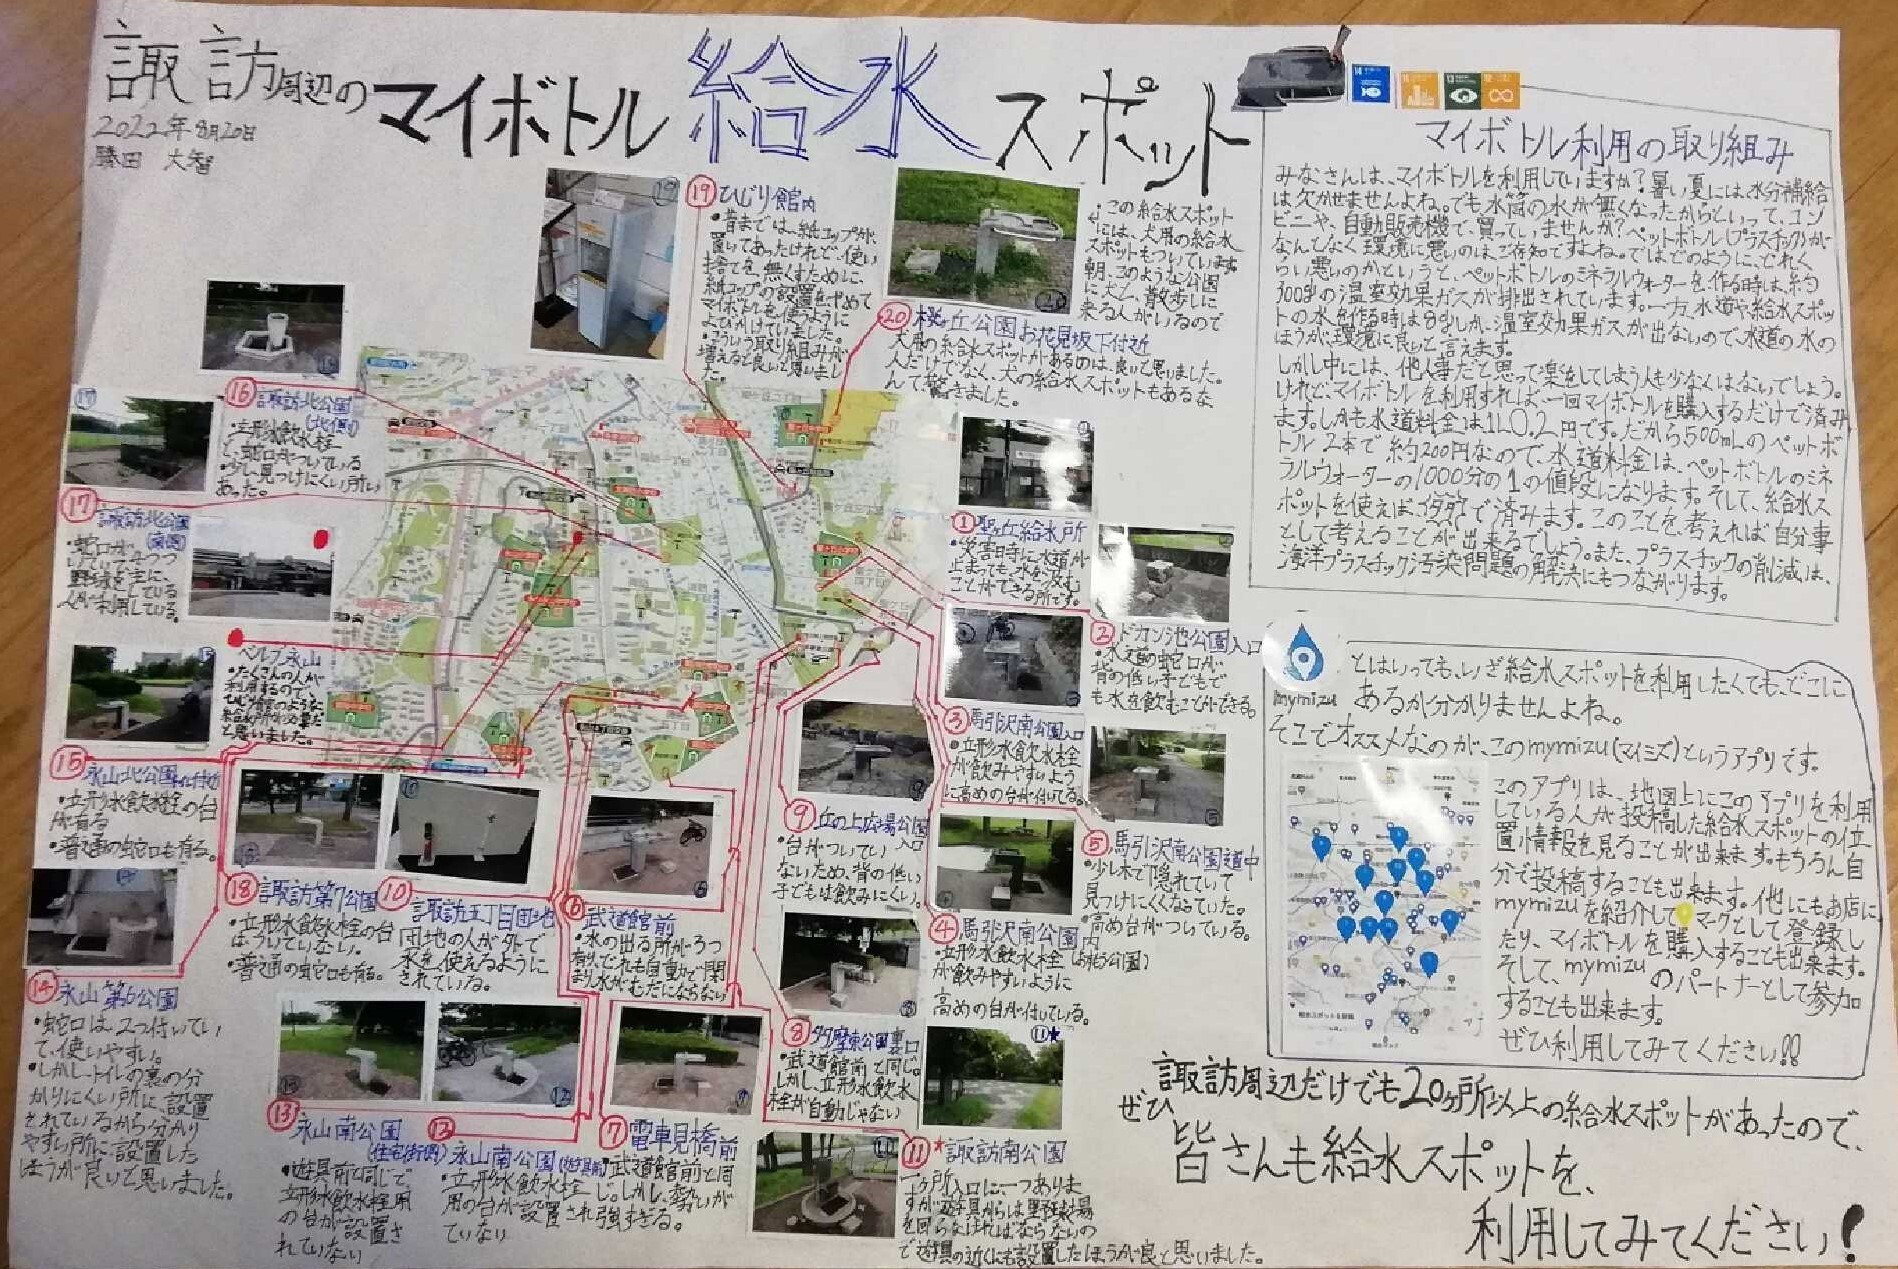 諏訪周辺のマイボトル給水スポット
2022年8月20日
勝田 大智
マイボトル利用の取り組み
みなさんは、マイボトルを利用していますか?暑い夏には、水分補給
は欠かせませんよね。でも水筒の水が無くなったからといって、コン
ビニや、自動販売機で買っていませんか?ペットボトル(プラスチック)が
なんとなく環境に悪いのはご存知ですよね。ではどのように、どれく
らい悪いのかというと、ペットボトルのミネラルウォーターを作る時は、約
の温室効果ガスが排出されています。一方、水道や給水スポッ
トの水を作る時は しか、温室効果ガスが出ないので、水道の水の
ほうが、環境に良いと言えます。
しかし中には、他人事だと思って楽をしてしまう人も少なくはないでしょう。
けれど、マイボトルを利用すれば、一回マイボトルを購入するだけで済み
ます。しかも水道料金は1L0.2円です。だから500mLのペットボ
トル2本で約200円なので、水道料金は、ペットボトルのミネ
ラルウォーターの1000分の1の値段になります。そして、給水ス
ポットを使えば で済みます。このことを考えれば自分事
として考えることが出来るでしょう。また、プラスチックの削減は、
海洋プラスチック汚染問題の解決にもつながります。
mymizu
とはいっても、いざ給水スポットを利用したくても、どこに
あるか分かりませんよね。
そこでオススメなのが、このmymizu(マイミズ)というアプリです。
このアプリは、地図上にこのアプリを利用
している人が投稿した給水スポットの位
置情報を見ることが出来ます。もちろん自
分で投稿することも出来ます。他にもお店に
mymizuを紹介してマークとして登録し
たり、マイボトルを購入することも出来ます。
そして、mymizuのパートナーとして参加
することも出来ます。
ぜひ利用してみてください!!
諏訪周辺だけでも20ヶ所以上の給水スポットがあったので、
ぜひ
皆さんも給水スポットを、
利用してみてください!
⑲ひじり館内
・昔までは、紙コップが、
置いてあったけれど、使い
捨てを、無くすために、
紙コップの設置をやめて
マイボトルを使うように
よびかけていました。
・こういう取り組みが
増えると良いと思いまし
た。
・この給水スポット
には、犬用の給水
スポットもついています
朝、このような公園
に犬と、散歩しに
来る人がいるので
⑳桜ヶ丘公園お花見坂下付近
犬用の給水スポットがあるのは、良いと思いました。
人だけでなく、犬の給水スポットもあるな
んて驚きました。
⑯諏訪北公園
・立形水飲水栓
と、蛇口がついている
・少し見つけにくい所に
あった。
⑰諏訪北公園
・蛇口が
ついていて
野球を主に、
人が利用している。
ベルブ永山
・たくさんの人が
利用するので、
ひじり館のような
給水所が必要だ
と思いました。
⑮永山北公園
・立形水飲水栓の台
が有る
・普通の蛇口も有る。
⑱諏訪第7公園
・立形水飲水栓の台
はついていない。
・普通の蛇口も有る。
⑩諏訪五丁目団地
団地の人が外で
水を、使えるように
されている。
⑥武道館前
・水の出る所が3つ
有り、どれも自動で閉
まり水がむだにならない
⑭永山第6公園
・蛇口は2つ付いてい
て、使いやすい。
・しかし、トイレの裏の分
かりにくい所に、設置
されているから分かり
やすい所に設置した
ほうが良いと思いました。
⑬永山南公園
(住宅街側)
・遊具前と同じで、
立形水飲水栓用
の台が設置さ
れていない
⑫永山南公園(遊具前)
・立形水飲水栓
用の台が設置され
ていない
⑦電車見橋前
・武道館前と同
じ。しかし、勢いが
強すぎる。
①聖ヶ丘給水所
・災害時に水道が
止まっても、水をくむ
ことができる所です。
②ドカン池公園入口
・水道の蛇口が
背の低い子どもで
も水を飲むことができる。
③馬引沢南公園入口
・立形水飲水栓
が飲みやすいよう
に高めの台が付いてる。
⑤馬引沢南公園道中
・少し木で隠れていて
見つけにくくなっていた。
・高め台がついている。
④馬引沢南公園内
・立形水飲水栓
が飲みやすいように
高めの台が付いている。
⑨丘の上広場公園
入口
・台がついてい
ないため、背の低い
子どもは飲みにくい。
⑧多摩東公園裏口
・武道館前と同じ。
しかし、立形水飲水
栓が自動じゃない
⑪*諏訪南公園
一ヶ所入口に、一つありま
すが遊具からは野球場
を回らなければならないの
で遊具の近くにも設置したほうが良と思いました。